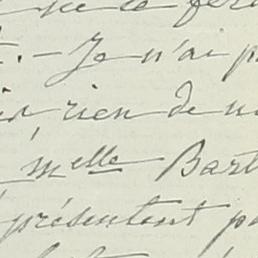 ne te fer
. — Je n'ai p
rien de n
Melle Bart
présentent pa